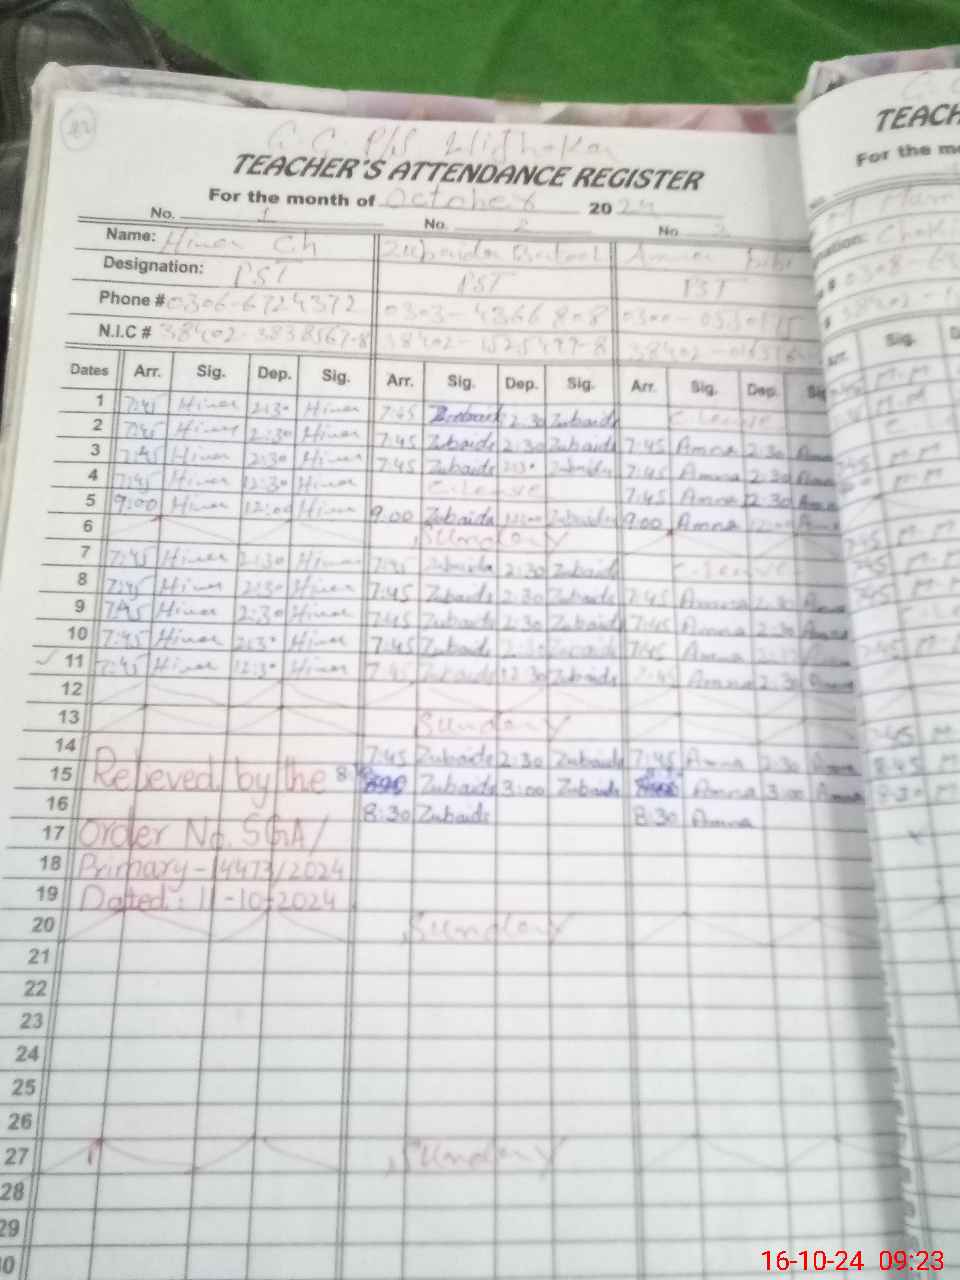 42
TEACHER'S ATTENDANCE REGISTER
For the month of October 2024
No. 1 No. 2 No. 3
Name: Hina Ch Zubaida Batool Amna Bibi
Designation: PST PST PST
Phone # 0306-6724372 0303-4366808
N.I.C # 38402-3838567-8
Dates Arr. Sig. Dep. Sig. Arr. Sig. Dep. Sig. Arr. Sig. Dep. Sig
1 7:45 Hina 2:30 Hina 7:45 2:30 Zubaida C. Leave
2 7:45 Hina 2:30 Hina 7:45 Zubaida 2:30 Zubaida 7:45 Amna 2:30 Amna
3 7:45 Hina 2:30 Hina 7:45 Zubaida 2:30 Zubaida 7:45 Amna 2:30 Amna
4 7:45 Hina 12:30 Hina C. Leave 7:45 Amna 12:30 Amna
5 9:00 Hina 12:00 Hina 9:00 Zubaida 12:00 Zubaida 9:00 Amna 12:00 Amna
6 Sunday
7 7:45 Hina 2:30 Hina 7:45 Zubaida 2:30 Zubaida C. Leave
8 7:45 Hina 2:30 Hina 7:45 Zubaida 2:30 Zubaida 7:45 Amna 2:30 Amna
9 7:45 Hina 2:30 Hina 7:45 Zubaida 2:30 Zubaida 7:45 Amna 2:30 Amna
10 7:45 Hina 2:30 Hina 7:45 Zubaida 2:30 Zubaida 7:45 Amna 2:30 Amna
11 7:45 Hina 12:30 Hina 7:45 Zubaida 12:30 Zubaida 7:45 Amna 12:30 Amna
12
13 Sunday
14 7:45 Zubaida 2:30 Zubaida 7:45 Amna 2:30 Amna
15 Relieved by the Zubaida 3:00 Zubaida Amna 3:00 Amna
16 8:30 Zubaida 8:30 Amna
17 Order No. SGA/
18 Primary-14473/2024
19 Dated: 11-10-2024
20 Sunday
21
22
23
24
25
26
27 Sunday
28
29
30
TEACH
For the mo
Sig.
16-10-24 09:23